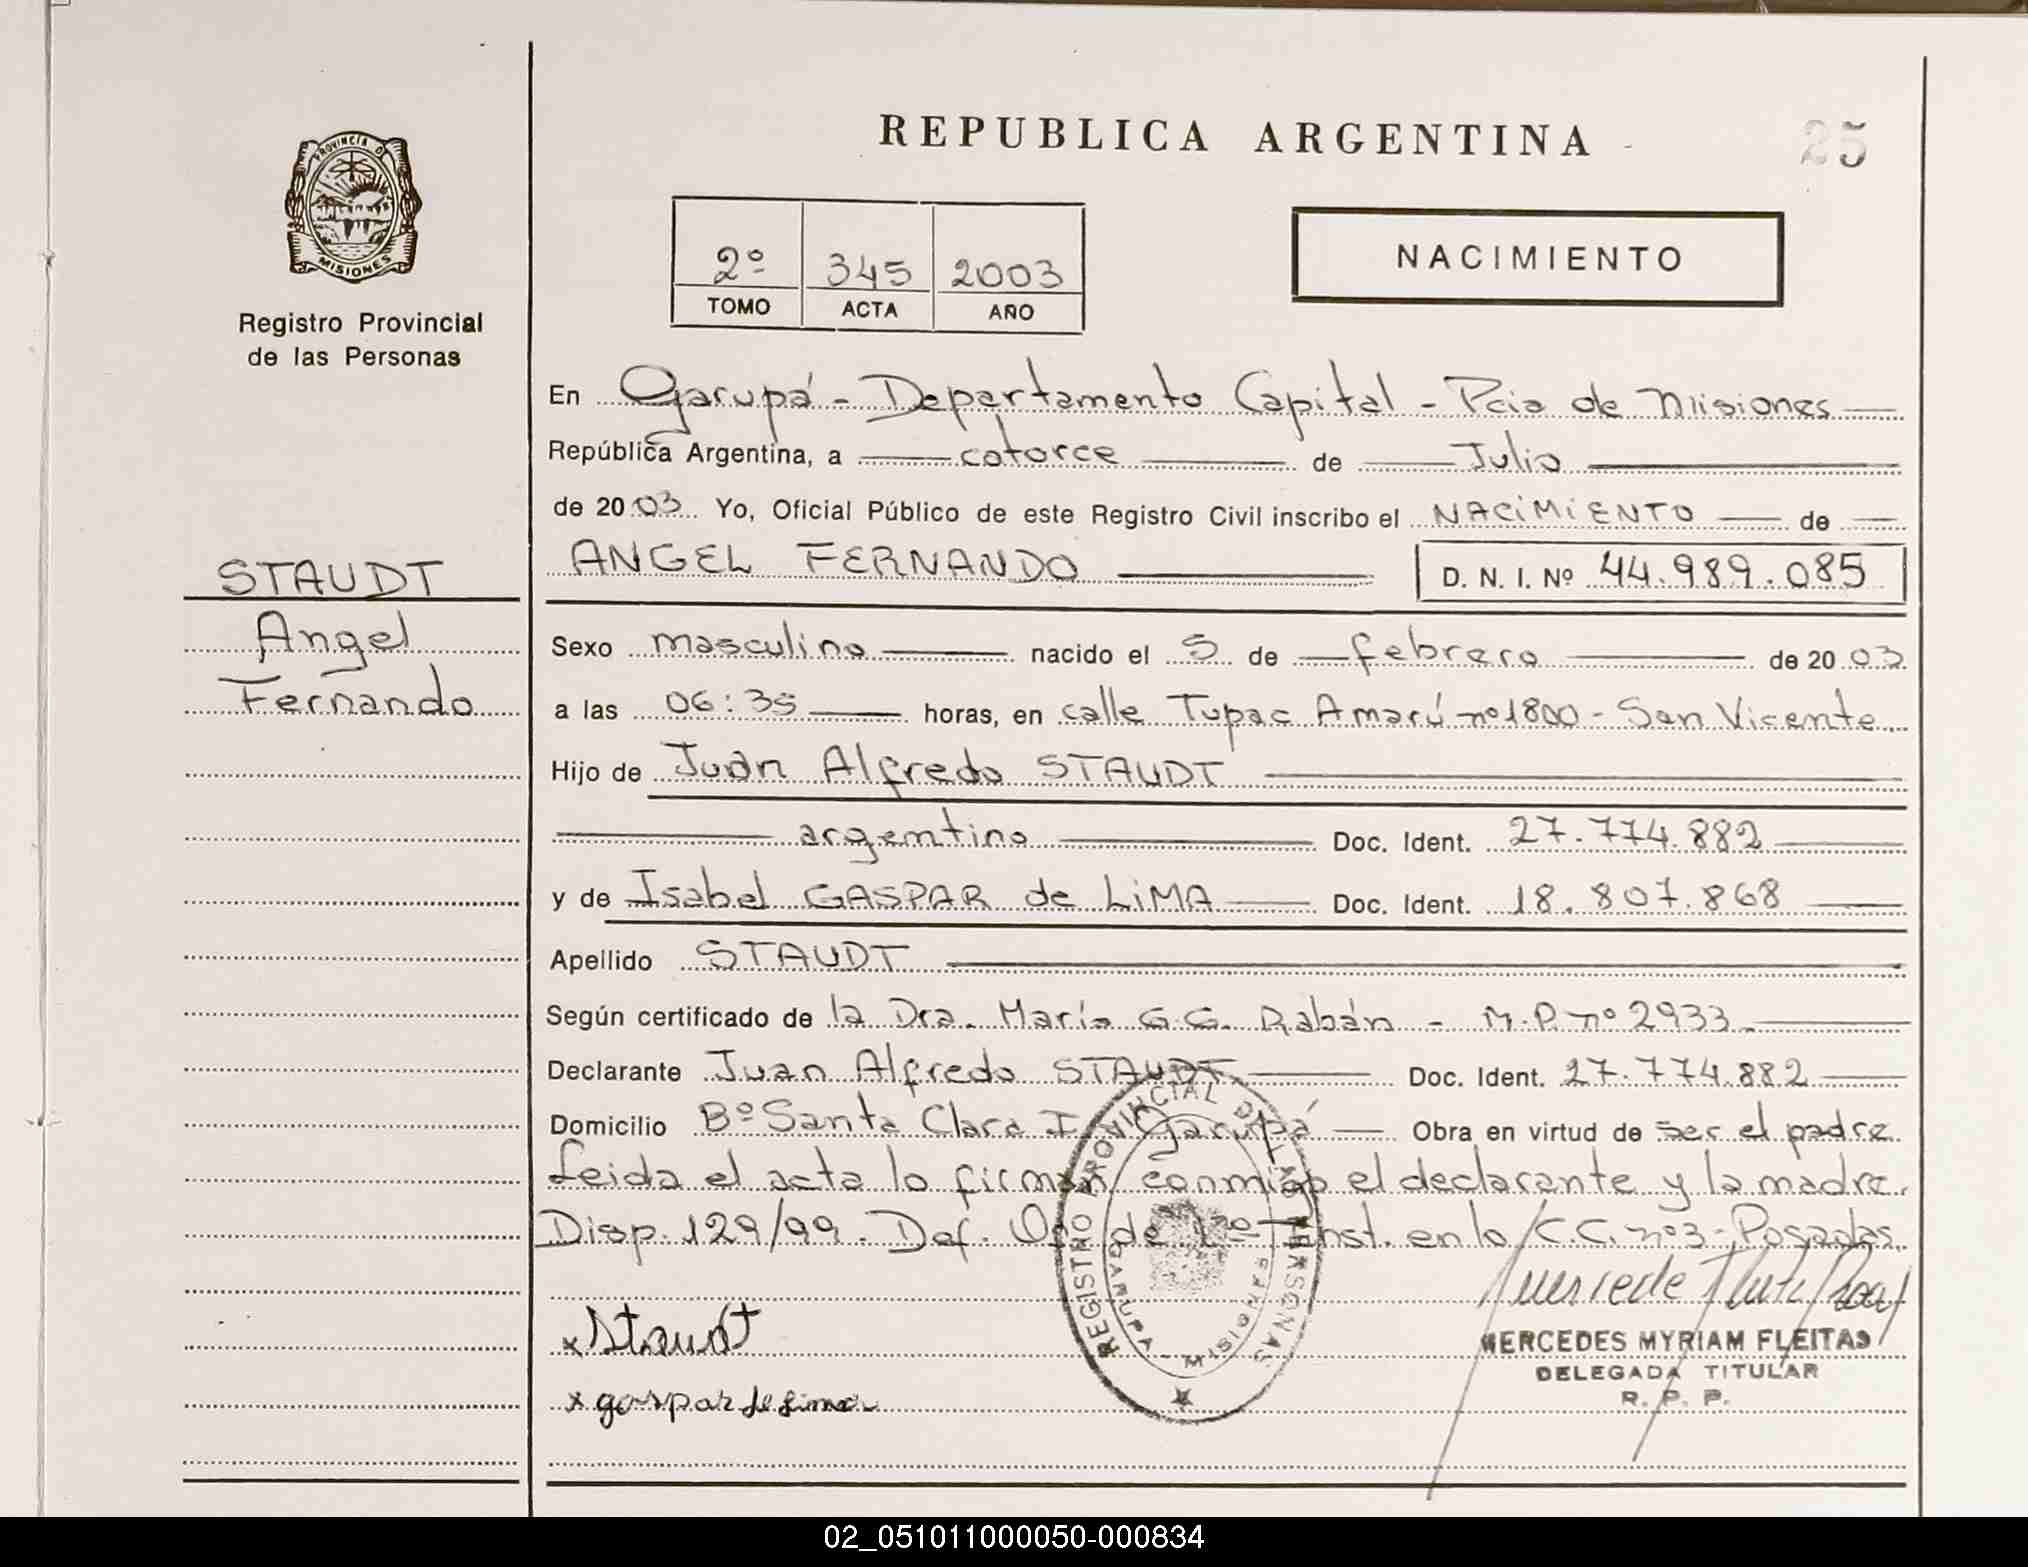 REPUBLICA ARGENTINA
25
PROVINCIA D
MISIONES
Registro Provincial
de las Personas
2º 345 2003
TOMO ACTA AÑO
NACIMIENTO
En Garupá - Departamento Capital - Pcia de Misiones
República Argentina, a catorce de Julio
de 2003 Yo, Oficial Público de este Registro Civil inscribo el NACIMIENTO de
ANGEL FERNANDO D. N. I. Nº 44.989.085
STAUDT
Angel
Fernando
Sexo masculino nacido el 5 de febrero de 2003
a las 06:35 horas, en calle Tupac Amarú nº 1800 - San Vicente
Hijo de Juan Alfredo STAUDT
argentino Doc. Ident. 27.774.882
y de Isabel GASPAR de LiMA Doc. Ident. 18.807.868
Apellido STAUDT
Según certificado de la Dra. María G.G. Rabán - M.P. nº 2933
Declarante Juan Alfredo STAUDT Doc. Ident. 27.774.882
Domicilio Bº Santa Clara I Garupá Obra en virtud de ser el padre
Leida el acta lo firman conmigo el declarante y la madre.
Disp. 129/99. Def. Of. de 1º Inst. en lo C.C. nº 3 - Posadas.
REGISTRO PROVINCIAL DE LAS PERSONAS
GARUPA MISIONES
x Staudt
x gaspar de lima
MERCEDES MYRIAM FLEITAS
DELEGADA TITULAR
R. P. P.
02_051011000050-000834